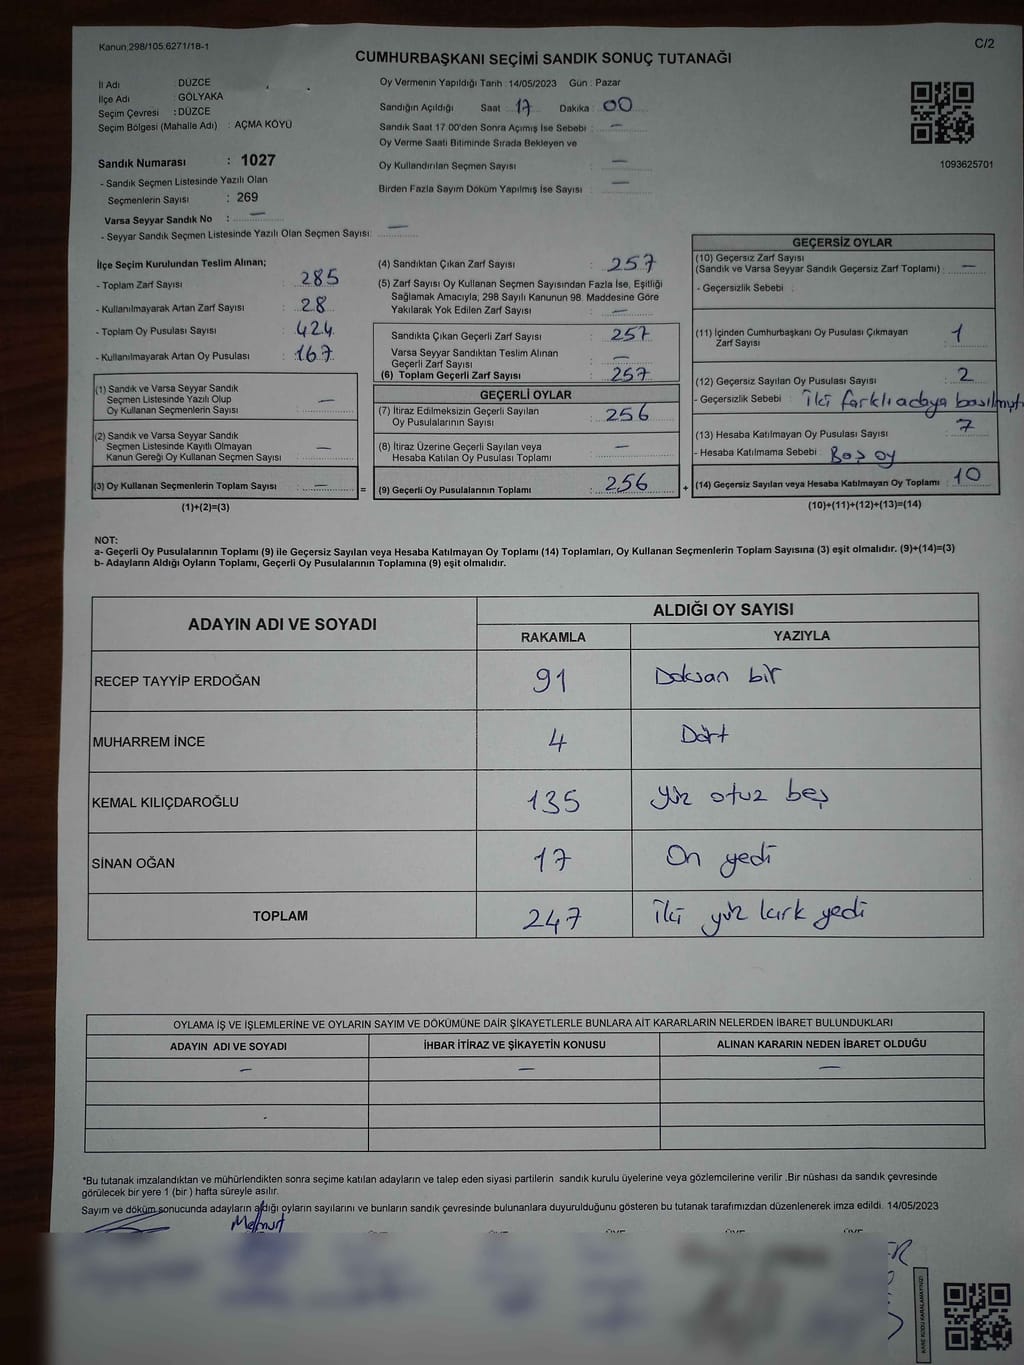 Kanun;298/105;6271/18-1
C/2
CUMHURBAŞKANI SEÇİMİ SANDIK SONUÇ TUTANAĞI
İl Adı : DÜZCE
İlçe Adı : GÖLYAKA
Seçim Çevresi : DÜZCE
Seçim Bölgesi (Mahalle Adı) : AÇMA KÖYÜ
Oy Vermenin Yapıldığı Tarih : 14/05/2023 Gün : Pazar
Sandığın Açıldığı Saat 17 Dakika 00
Sandık Saat 17:00'den Sonra Açımış İse Sebebi : —
Oy Verme Saati Bitiminde Sırada Bekleyen ve
Oy Kullandırılan Seçmen Sayısı : —
Birden Fazla Sayım Döküm Yapılmış İse Sayısı : —
1093625701
Sandık Numarası : 1027
- Sandık Seçmen Listesinde Yazılı Olan
Seçmenlerin Sayısı : 269
Varsa Seyyar Sandık No : —
- Seyyar Sandık Seçmen Listesinde Yazılı Olan Seçmen Sayısı: —
İlçe Seçim Kurulundan Teslim Alınan;
- Toplam Zarf Sayısı : 285
- Kullanılmayarak Artan Zarf Sayısı : 28
- Toplam Oy Pusulası Sayısı : 424
- Kullanılmayarak Artan Oy Pusulası : 167
(1) Sandık ve Varsa Seyyar Sandık
Seçmen Listesinde Yazılı Olup
Oy Kullanan Seçmenlerin Sayısı : —
(2) Sandık ve Varsa Seyyar Sandık
Seçmen Listesinde Kayıtlı Olmayan
Kanun Gereği Oy Kullanan Seçmen Sayısı : —
(3) Oy Kullanan Seçmenlerin Toplam Sayısı : —
(1)+(2)=(3)
=
(4) Sandıktan Çıkan Zarf Sayısı : 257
(5) Zarf Sayısı Oy Kullanan Seçmen Sayısından Fazla İse, Eşitliği
Sağlamak Amacıyla; 298 Sayılı Kanunun 98. Maddesine Göre
Yakılarak Yok Edilen Zarf Sayısı : —
Sandıkta Çıkan Geçerli Zarf Sayısı : 257
Varsa Seyyar Sandıktan Teslim Alınan
Geçerli Zarf Sayısı : —
(6) Toplam Geçerli Zarf Sayısı : 257
GEÇERLİ OYLAR
(7) İtiraz Edilmeksizin Geçerli Sayılan
Oy Pusulalarının Sayısı : 256
(8) İtiraz Üzerine Geçerli Sayılan veya
Hesaba Katılan Oy Pusulası Toplamı : —
(9) Geçerli Oy Pusulalarının Toplamı : 256
+
GEÇERSİZ OYLAR
(10) Geçersiz Zarf Sayısı
(Sandık ve Varsa Seyyar Sandık Geçersiz Zarf Toplamı) : —
- Geçersizlik Sebebi :
(11) İçinden Cumhurbaşkanı Oy Pusulası Çıkmayan
Zarf Sayısı : 1
(12) Geçersiz Sayılan Oy Pusulası Sayısı : 2
- Geçersizlik Sebebi : iki farklı adaya basılmıştı
(13) Hesaba Katılmayan Oy Pusulası Sayısı : 7
- Hesaba Katılmama Sebebi : Boş oy
(14) Geçersiz Sayılan veya Hesaba Katılmayan Oy Toplamı : 10
(10)+(11)+(12)+(13)=(14)
NOT:
a- Geçerli Oy Pusulalarının Toplamı (9) ile Geçersiz Sayılan veya Hesaba Katılmayan Oy Toplamı (14) Toplamları, Oy Kullanan Seçmenlerin Toplam Sayısına (3) eşit olmalıdır. (9)+(14)=(3)
b- Adayların Aldığı Oyların Toplamı, Geçerli Oy Pusulalarının Toplamına (9) eşit olmalıdır.
ADAYIN ADI VE SOYADI ALDIĞI OY SAYISI
RAKAMLA YAZIYLA
RECEP TAYYİP ERDOĞAN 91 Doksan bir
MUHARREM İNCE 4 Dört
KEMAL KILIÇDAROĞLU 135 yüz otuz beş
SİNAN OĞAN 17 On yedi
TOPLAM 247 iki yüz kırk yedi
OYLAMA İŞ VE İŞLEMLERİNE VE OYLARIN SAYIM VE DÖKÜMÜNE DAİR ŞİKAYETLERLE BUNLARA AİT KARARLARIN NELERDEN İBARET BULUNDUKLARI
ADAYIN ADI VE SOYADI İHBAR İTİRAZ VE ŞİKAYETİN KONUSU ALINAN KARARIN NEDEN İBARET OLDUĞU
— — —
*Bu tutanak imzalandıktan ve mühürlendikten sonra seçime katılan adayların ve talep eden siyasi partilerin sandık kurulu üyelerine veya gözlemcilerine verilir .Bir nüshası da sandık çevresinde
görülecek bir yere 1 (bir ) hafta süreyle asılır.
Sayım ve döküm sonucunda adayların aldığı oyların sayılarını ve bunların sandık çevresinde bulunanlara duyurulduğunu gösteren bu tutanak tarafımızdan düzenlenerek imza edildi. 14/05/2023
Mahmut
ÜYE ÜYE ÜYE
KARE KODU KARALAMAYINIZ!